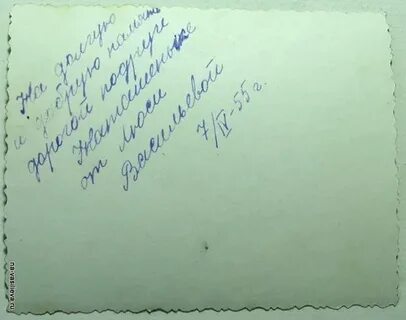 На долгую
и добрую память
дорогой подруги
Наташеньке
от Люси
Васильевой
7/IV-55 г.
na-vasilieva.ru